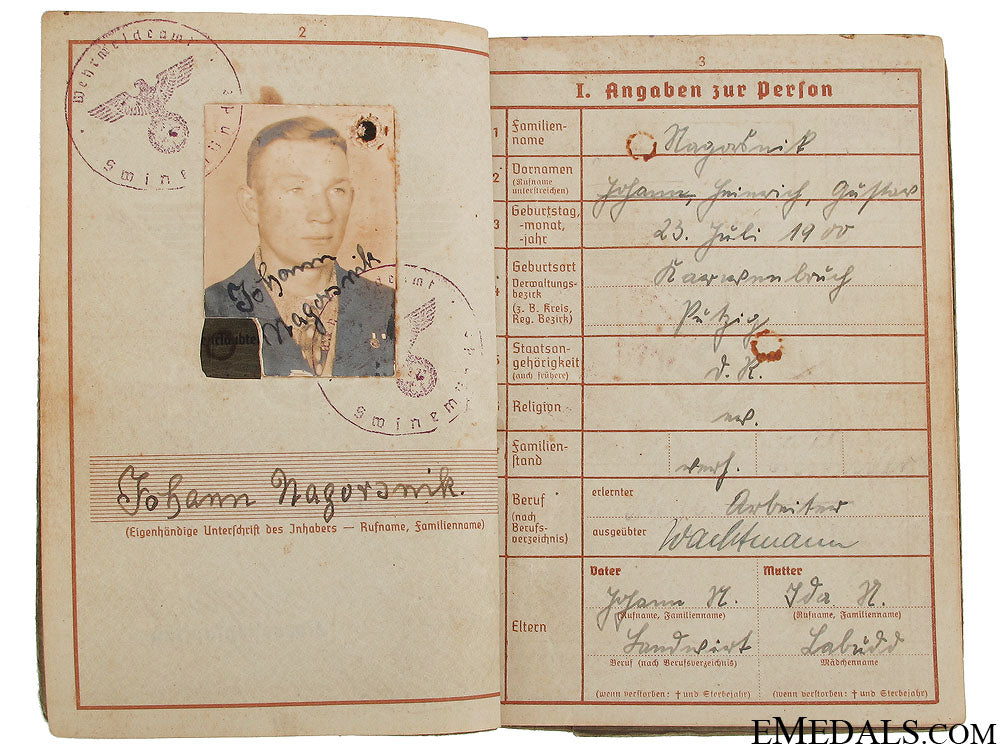 2
Wehrmeldeamt
Swine
Johann
Nagorsnik
Swinem
Johann Nagorsnik.
(Eigenhändige Unterschrift des Inhabers — Rufname, Familienname)
3
I. Angaben zur Person
1 Familien-
name
Nagorsnik
2 Vornamen
(Rufname
unterstreichen)
Johann, Heinrich, Gustav
3 Geburtstag,
-monat,
-jahr
23. Juli 1900
4 Geburtsort
Verwaltungs-
bezirk
(z. B. Kreis,
Reg. Bezirk)
Karwenbruch
Putzig
5 Staatsan-
gehörigkeit
(auch frühere)
d. R.
Religion
ev.
Familien-
stand
verh.
Beruf
(nach
Berufs-
verzeichnis)
erlernter
Arbeiter
ausgeübter
Wachtmann
Eltern
Vater
Johann N.
(Rufname, Familienname)
Landwirt
Beruf (nach Berufsverzeichnis)
(wenn verstorben: † und Sterbejahr)
Mutter
Ida N.
(Rufname, Familienname)
Labudd
Mädchenname
(wenn verstorben: † und Sterbejahr)
EMEDALS.COM